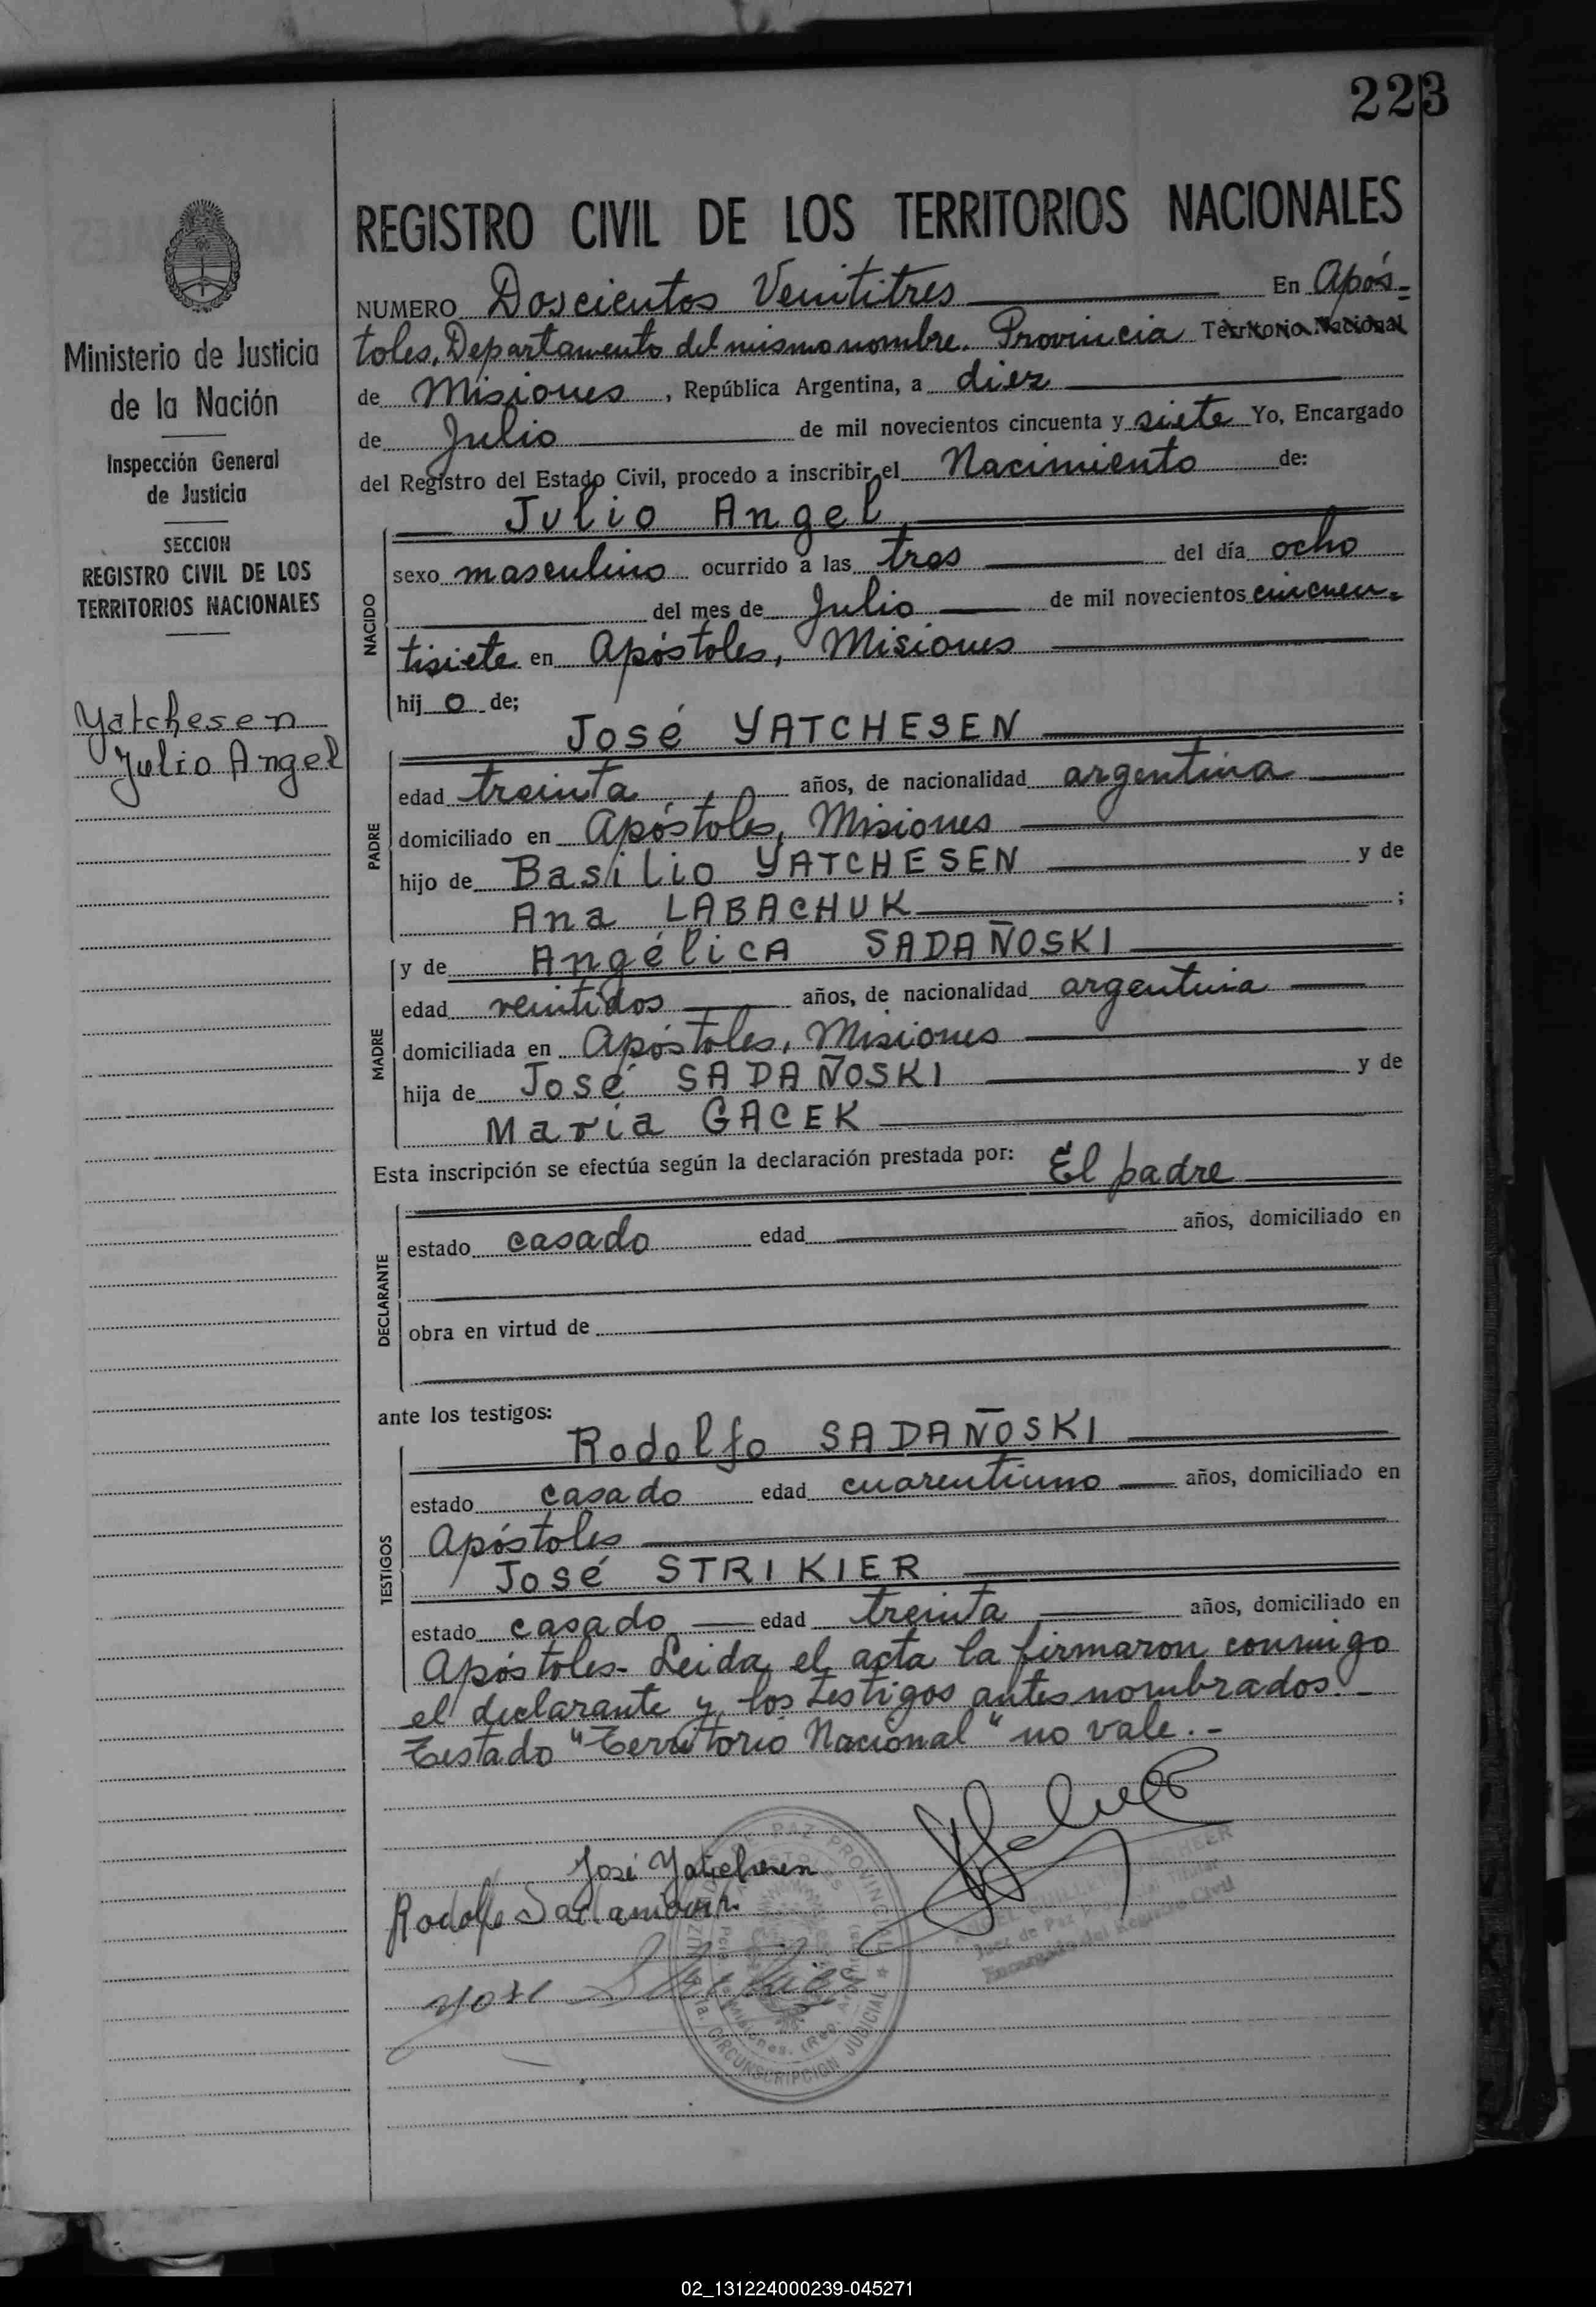 223
Ministerio de Justicia
de la Nación
Inspección General
de Justicia
SECCION
REGISTRO CIVIL DE LOS
TERRITORIOS NACIONALES
Yatchesen
Julio Angel
REGISTRO CIVIL DE LOS TERRITORIOS NACIONALES
NUMERO Doscientos Veintitres En Após=
toles, Departamento del mismo nombre. Provincia Territorio Nacional
de Misiones, República Argentina, a diez
de Julio de mil novecientos cincuenta y siete Yo, Encargado
del Registro del Estado Civil, procedo a inscribir el Nacimiento de:
Julio Angel
NACIDO
sexo masculino ocurrido a las tres del día ocho
del mes de Julio de mil novecientos cincuen=
tisiete en Apóstoles, Misiones
hijo de;
José YATCHESEN
PADRE
edad treinta años, de nacionalidad argentina
domiciliado en Apóstoles, Misiones
hijo de Basilio YATCHESEN y de
Ana LABACHUK ;
y de Angélica SADAÑOSKI
MADRE
edad veintidos años, de nacionalidad argentina
domiciliada en Apóstoles, Misiones
hija de José SADAÑOSKI y de
María GACEK
Esta inscripción se efectúa según la declaración prestada por: El padre
DECLARANTE
estado casado edad años, domiciliado en
obra en virtud de
ante los testigos:
Rodolfo SADAÑOSKI
TESTIGOS
estado casado edad cuarentiuno años, domiciliado en
Apóstoles
José STRIKIER
estado casado edad treinta años, domiciliado en
Apóstoles- Leida el acta la firmaron conmigo
el declarante y los testigos antes nombrados.-
Testado "Territorio Nacional" no vale.-
José Yatchesen
Rodolfo
PAZ PROVINCIA
CIRCUNSCRIPCION JUDICIAL
Juez de Paz
Encargado del Registro Civil
02_131224000239-045271